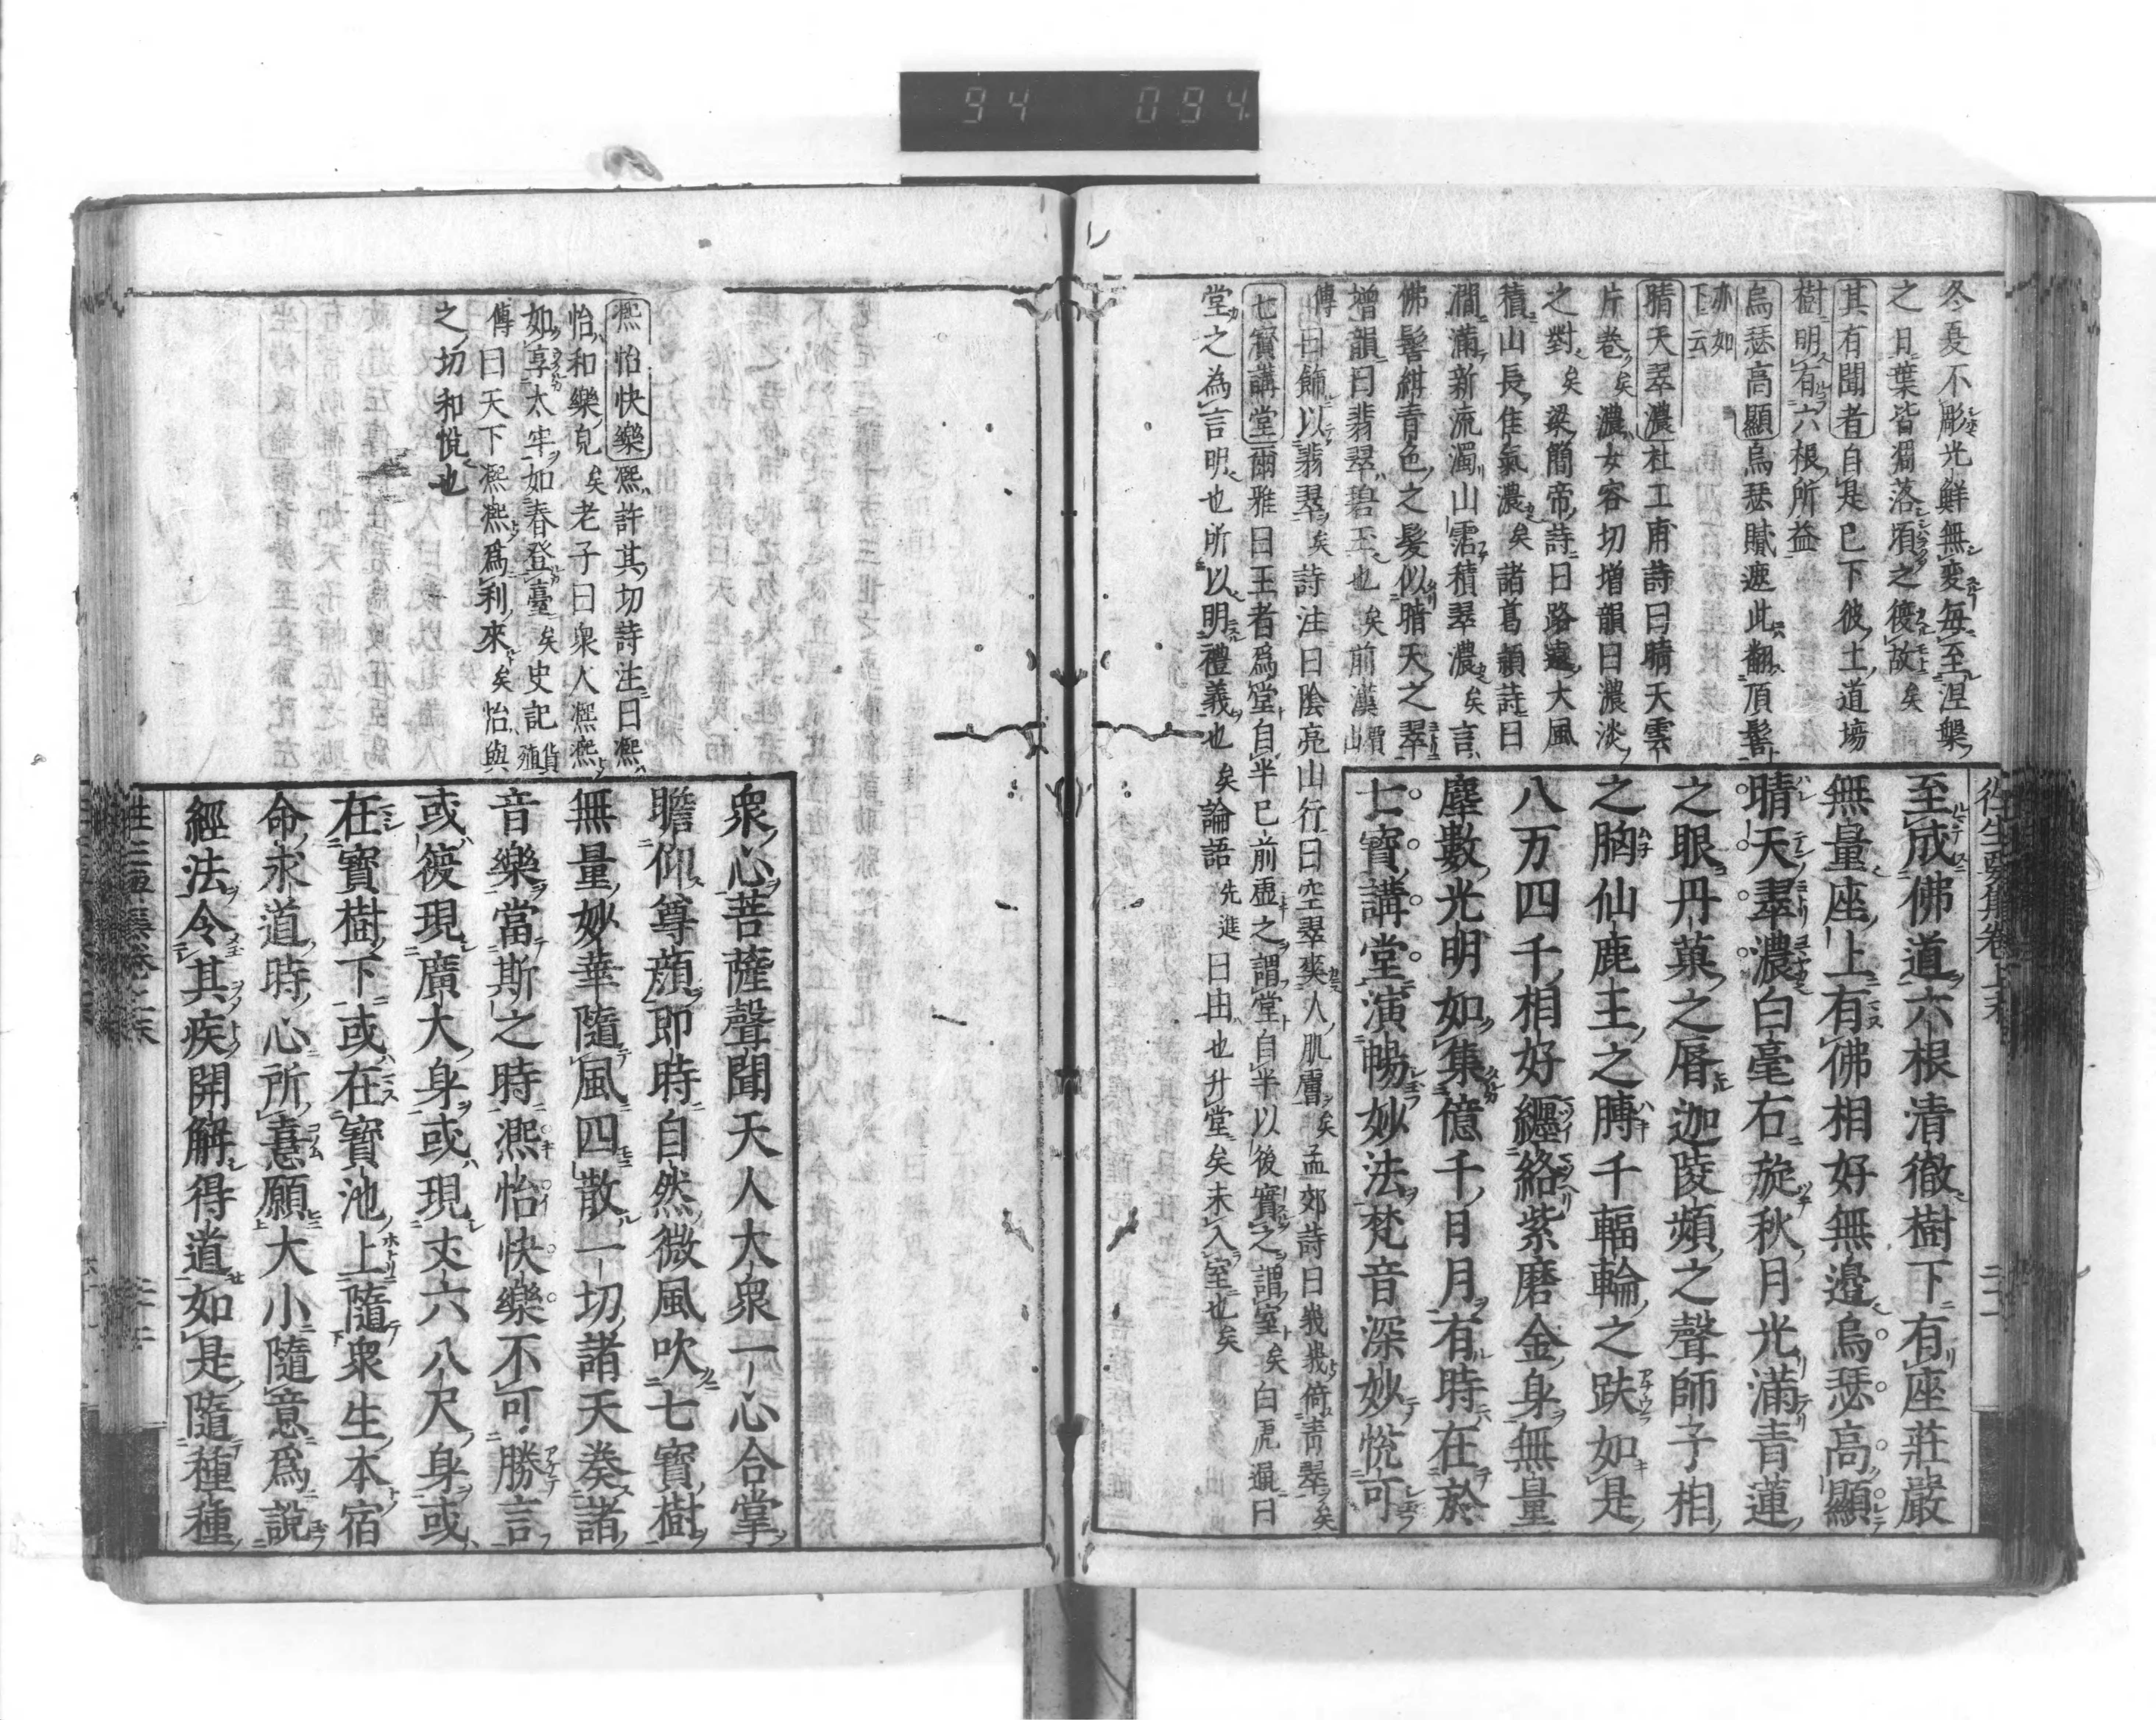 94 094
冬夏不彫光鮮無変毎至涅槃
之日葉皆凋落須之復故矣
其有聞者自是已下彼土道場
樹明有六根所益
烏瑟高顯烏瑟膩遮此翻頂髻
亦如
下云
晴天翠濃杜工甫詩曰晴天雲
片卷矣濃女容切増韻曰濃淡
之對矣梁簡帝詩曰路遠大風
積山長佳氣濃矣諸葛頴詩曰
澗滿新流濁山霑積翠濃矣言
佛髻紺青色之髮似暗天之翠
増韻曰翡翠碧玉也矣前漢
傳曰飾以翡翠矣詩注曰陰亮山行曰空翠爽人肌膚矣孟郊詩曰幾幾倚青翠矣
七寳講堂爾雅曰王者爲堂自半已前虛之謂堂自半以後實之謂室矣白虎通曰
堂之為言明也所以明禮義也矣論語先進曰由也升堂矣未入室也矣
往生要集卷上末
至成佛道六根清徹樹下有座莊嚴
無量座上有佛相好無邊烏瑟高顯
晴天翠濃白毫右旋秋月光滿青蓮
之眼丹菓之脣迦陵頻之聲師子相
之胸仙鹿王之膊千輻輪之趺如是
八万四千相好纏絡紫磨金身無量
塵數光明如集億千日月有時在於
七寶講堂演暢妙法梵音深妙悦可
熈怡快樂熈許其切詩注曰熈
怡和樂皃矣老子曰衆人熈熈
如享太牢如春登臺矣史記貨殖
傳曰天下熈熈爲利來矣怡與
之切和悅也
衆心菩薩聲聞天人大衆一心合掌
瞻仰尊顔即時自然微風吹七寶樹
無量妙華隨風四散一切諸天奏諸
音樂當斯之時熈怡快樂不可勝言
或復現廣大身或現丈六八尺身或
在寶樹下或在寶池上隨衆生本宿
命求道時心所憙願大小隨意爲說
經法令其疾開解得道如是隨種種